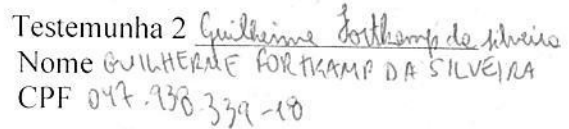 Testemunha 2 Guilherme Fortkamp da Silveira
Nome GUILHERME FORTKAMP DA SILVEIRA
CPF 047.938.339-18